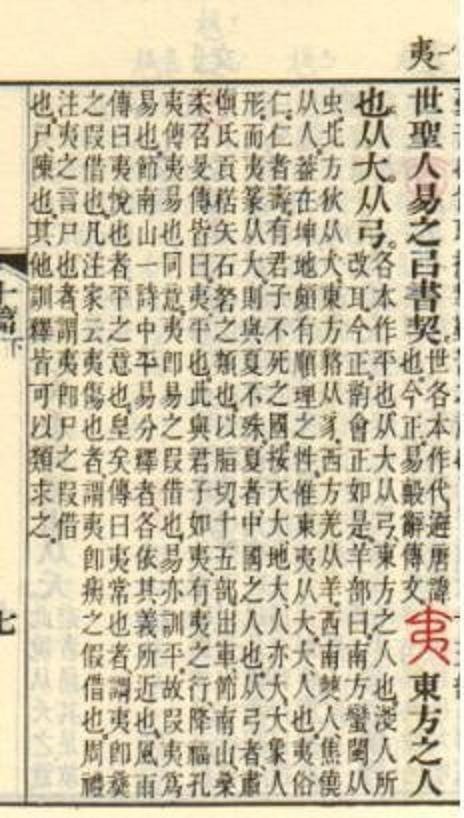 夷
世聖人易之㠯書契。世各本作代。避唐諱
也。今正。易毄辭傳文
夷 東方之人
也。从大从弓。各本作平也。从大从弓。東方之人也。淺人所
改耳。今正。韵會正如是。羊部曰。南方蠻閩从
虫。北方狄从犬。東方貉从豸。西方羌从羊。西南僰人焦僥
从人。蓋在坤地頗有順理之性。惟東夷从大。大人也。夷俗
仁。仁者壽。有君子不死之國。按天大地大人亦大。大象人
形。而夷篆从大。則與夏不殊。夏者中國之人也。从弓者肅
愼氏貢楛矢石砮之類也。以脂切。十五部。出車節南山桑
柔召旻傳皆曰。夷平也。此與君子如夷有夷之行降福孔
夷傳夷易也同意。夷卽易之叚借也。易亦訓平。故叚夷爲
易也。節南山一詩中平易分釋者。各依其義所近也。風雨
傳曰夷悅也者。平之意也。皇矣傳曰夷常也者。謂夷卽彝
之叚借也。凡注家云夷傷也者。謂夷卽痍之假借也。周禮
注夷之言尸也者。謂夷卽尸之叚借
也。尸陳也。其他訓釋皆可以類求之。
篇下
七